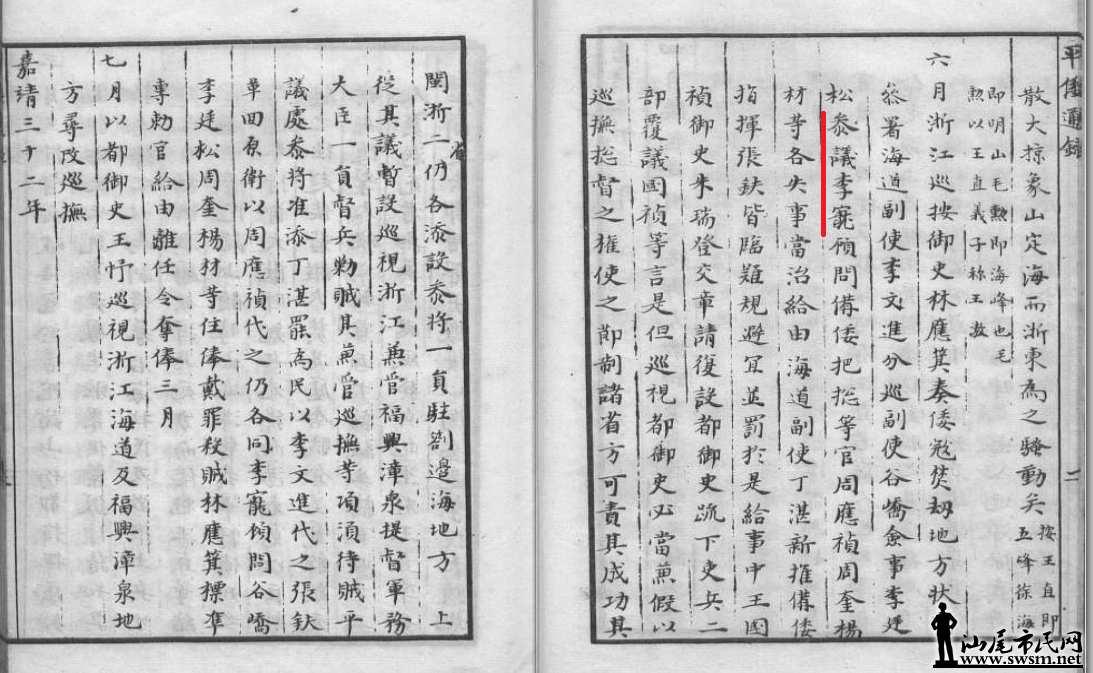 平倭通錄
二
散大掠象山定海而浙東為之騷動矣
按王直即
五峰徐海
即明山毛勲即海峰也毛
勲以王直義子称王滶
六月浙江巡按御史林應箕奏倭寇焚刼地方状
叅署海道副使李文進分巡副使谷嶠僉事李廷
松叅議李寵顾問備倭把総等官周應禎周奎楊
材等各失事當治給由海道副使丁湛新推備倭
指揮張鈇皆臨難規避冝並罰扵是給事中王國
禎御史朱瑞登交章請復設都御史䟽下吏兵二
部覆議國禎等言是但巡視都御史必當兼假以
巡撫総督之權使之節制諸省方可責其成功其
閩浙二省仍各添設叅将一員駐劄邉海地方 上
從其議暫設巡視浙江兼管福興漳泉提督軍務
大臣一員督兵勦賊其兼管巡撫等項湏待賊平
議處叅将准添丁湛罷為民以李文進代之張鈇
革回原衛以周應禎代之仍各同李寵顾問谷嶠
李廷松周奎楊材等住俸戴罪殺賊林應箕標凖
專勅官給由離任令奪俸三月
七月以都御史王忬巡視浙江海道及福興漳泉地
方尋改巡撫
嘉靖三十二年
汕尾市民网
www.swsm.net